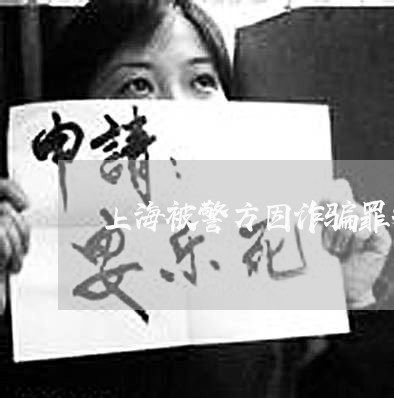 申請：
上海被警方因诈骗罪
安乐死